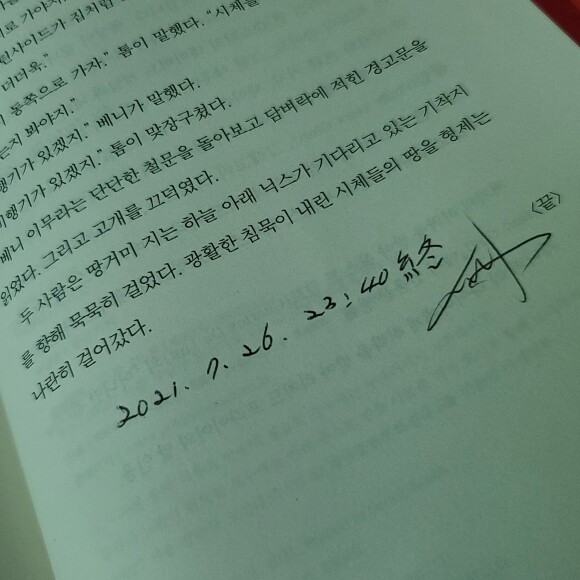 로 가야지
런사이드가 짐처럼
더더욱.”
동쪽으로 가자.” 톰이 말했다. “시체들
는지 봐야지.”
행기가 있겠지.” 베니가 말했다.
비행기가 있겠지.” 톰이 맞장구쳤다.
베니 이무라는 단단한 철문을 돌아보고 담벼락에 적힌 경고문을
읽었다. 그리고 고개를 끄덕였다.
두 사람은 땅거미 지는 하늘 아래 닉스가 기다리고 있는 기착지
를 향해 묵묵히 걸었다. 광활한 침묵이 내린 시체들의 땅을 형제는
나란히 걸어갔다.
〈끝〉
2021. 7. 26. 23:40 終